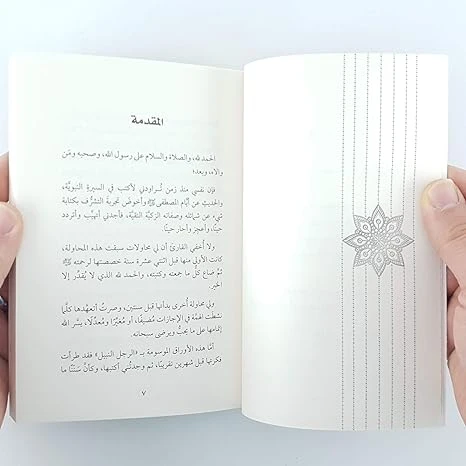 المقدمة
الحمد لله، والصلاة والسلام على رسول الله، وصحبه ومَن
والاه، وبعد؛
فإن نفسي منذ زمن تُراودني لأكتب في السيرة النبويَّة،
والحديث عن أيَّام المصطفى ﷺ وأخوضَ تجربة التشرُّف بكتابة
شيء عن شمائله وصفاته الزكيَّة النقيَّة، فأجدني أتهيَّب وأتردد
حينًا، وأعجز وأحار حينًا.
ولا أُخفي القارئ أن لي محاولات سبقت هذه المحاولة،
كانت الأولى منها قبل اثنتي عشرة سنة خصصتها لرحمته ﷺ
ثمَّ ضاع كلّ ما جمعته وكتبته، والحمد لله الذي لم يُقدِّر إلا
خيرًا.
ولي محاولة أُخرى بدأتها قبل سنتين، وصرتُ أتعهَّدها كلَّما
نشطت الهمَّة في الإجازات مُضيفًا، أو مُغيِّرًا ومُعدِّلًا، يسَّر الله
إتمامها على ما يحبُّ ويرضى سبحانه.
أمَّا هذه الأوراق الموسومة بـ «الرجل النبيل» فقد طرأت
فكرتها قبل شهرين تقريبًا، ثم وجدتُني أكتبها، وكأنَّ سَنَتًا ما
٧